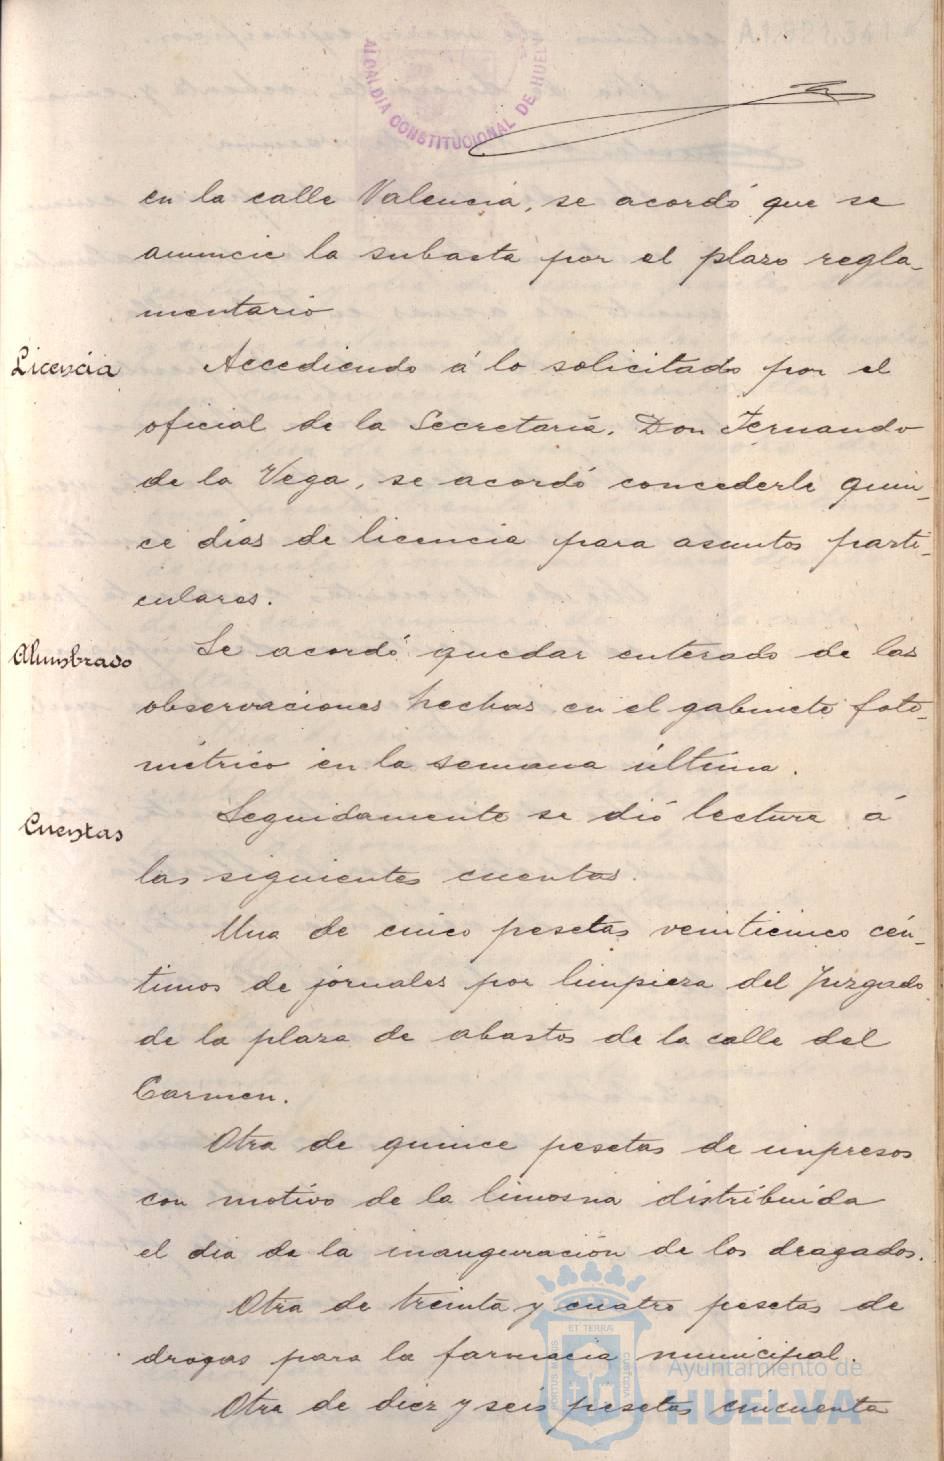 ALCALDIA CONSTITUCIONAL DE HUEL
en la calle Valencia, se acordó que se
anuncie la subasta por el plazo regla-
mentario
Licencia
Accediendo á lo solicitado por el
oficial de la Secretaría, Don Fernando
de la Vega, se acordó concederle quin-
ce dias de licencia para asuntos parti-
culares.
Alumbrado
Se acordó quedar enterado de las
observaciones hechas en el gabinete foto-
métrico en la semana última.
Cuentas
Seguidamente se dió lectura á
las siguientes cuentas.
Una de cinco pesetas veinticinco cén-
timos de jornales por limpieza del Juzgado
de la plaza de abastos de la calle del
Carmen.
Otra de quince pesetas de impresos
con motivo de la limosna distribuida
el dia de la inauguración de los dragados.
Otra de treinta y cuatro pesetas de
drogas para la farmacia municipal.
Otra de diez y seis pesetas cincuenta
ET TERRA
PORTUS MARIS
CUSTODIA
Ayuntamiento de
HUELVA